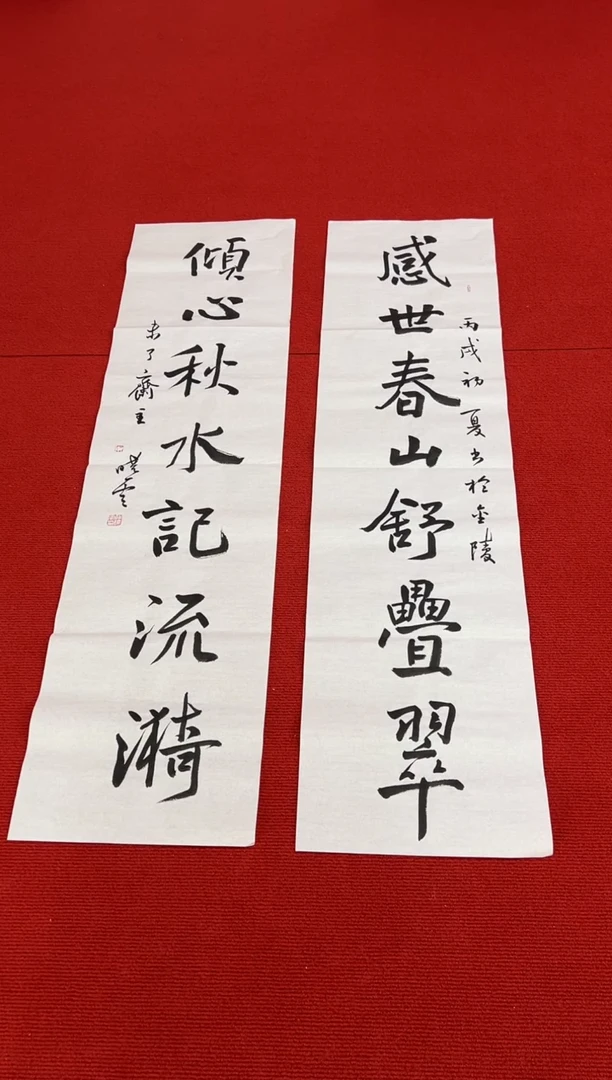 感世春山舒疊翠
丙戌初夏书於金陵
傾心秋水記流漪
未了齋主
曉雲